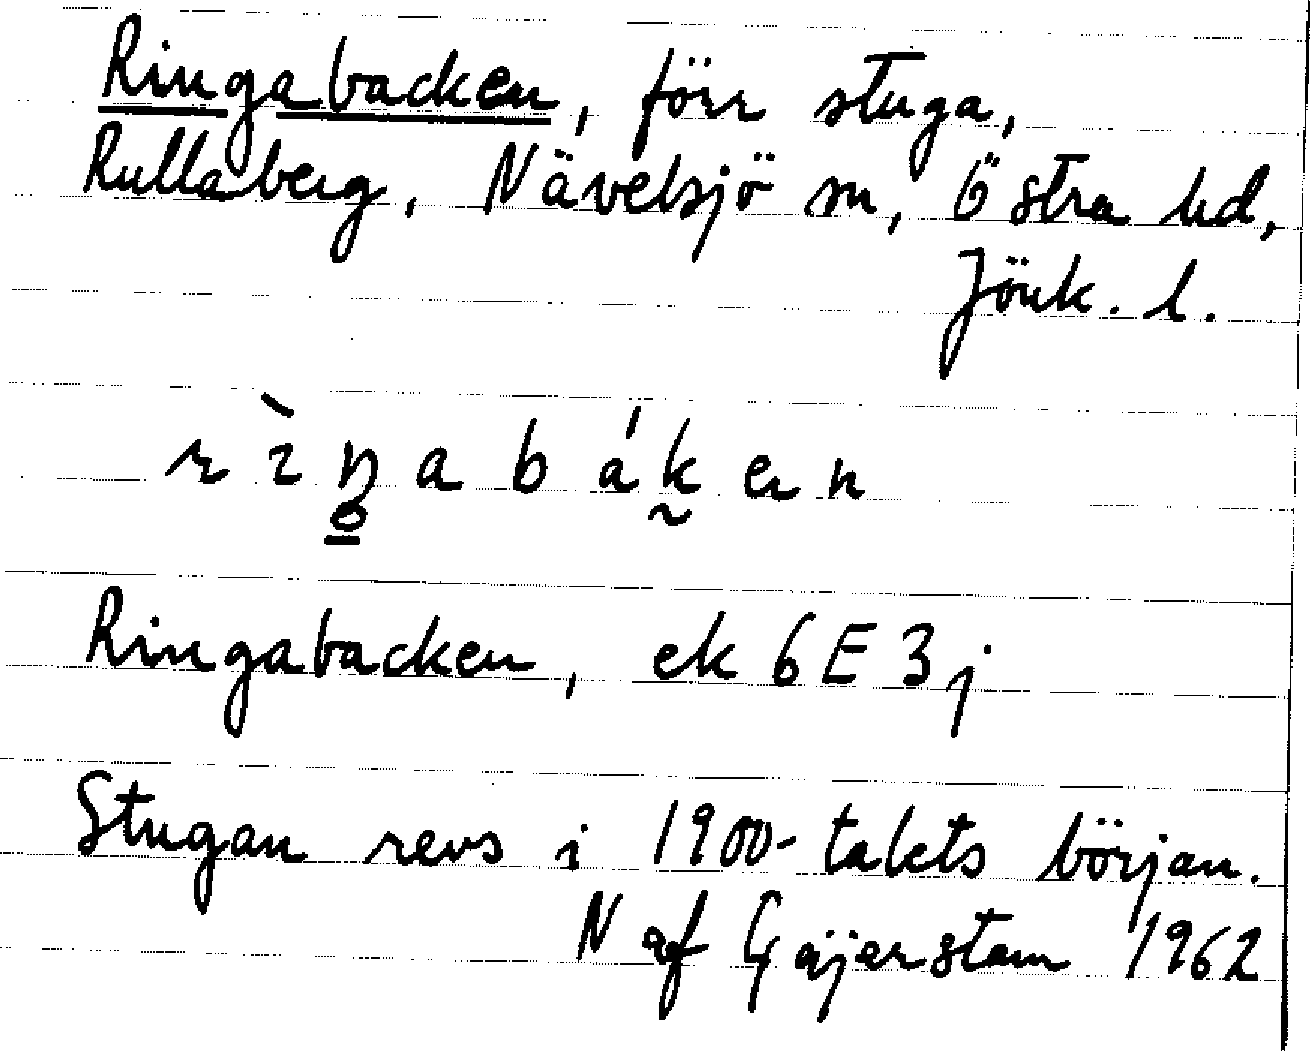 Ringabacken, förr stuga,
Rullaberg, Nävelsjö sn, Östra hd,
Jönk. l.
Ringabacken, ek 6E3j
Stugan revs i 1900-talets början.
N af Gäjerstam 1962